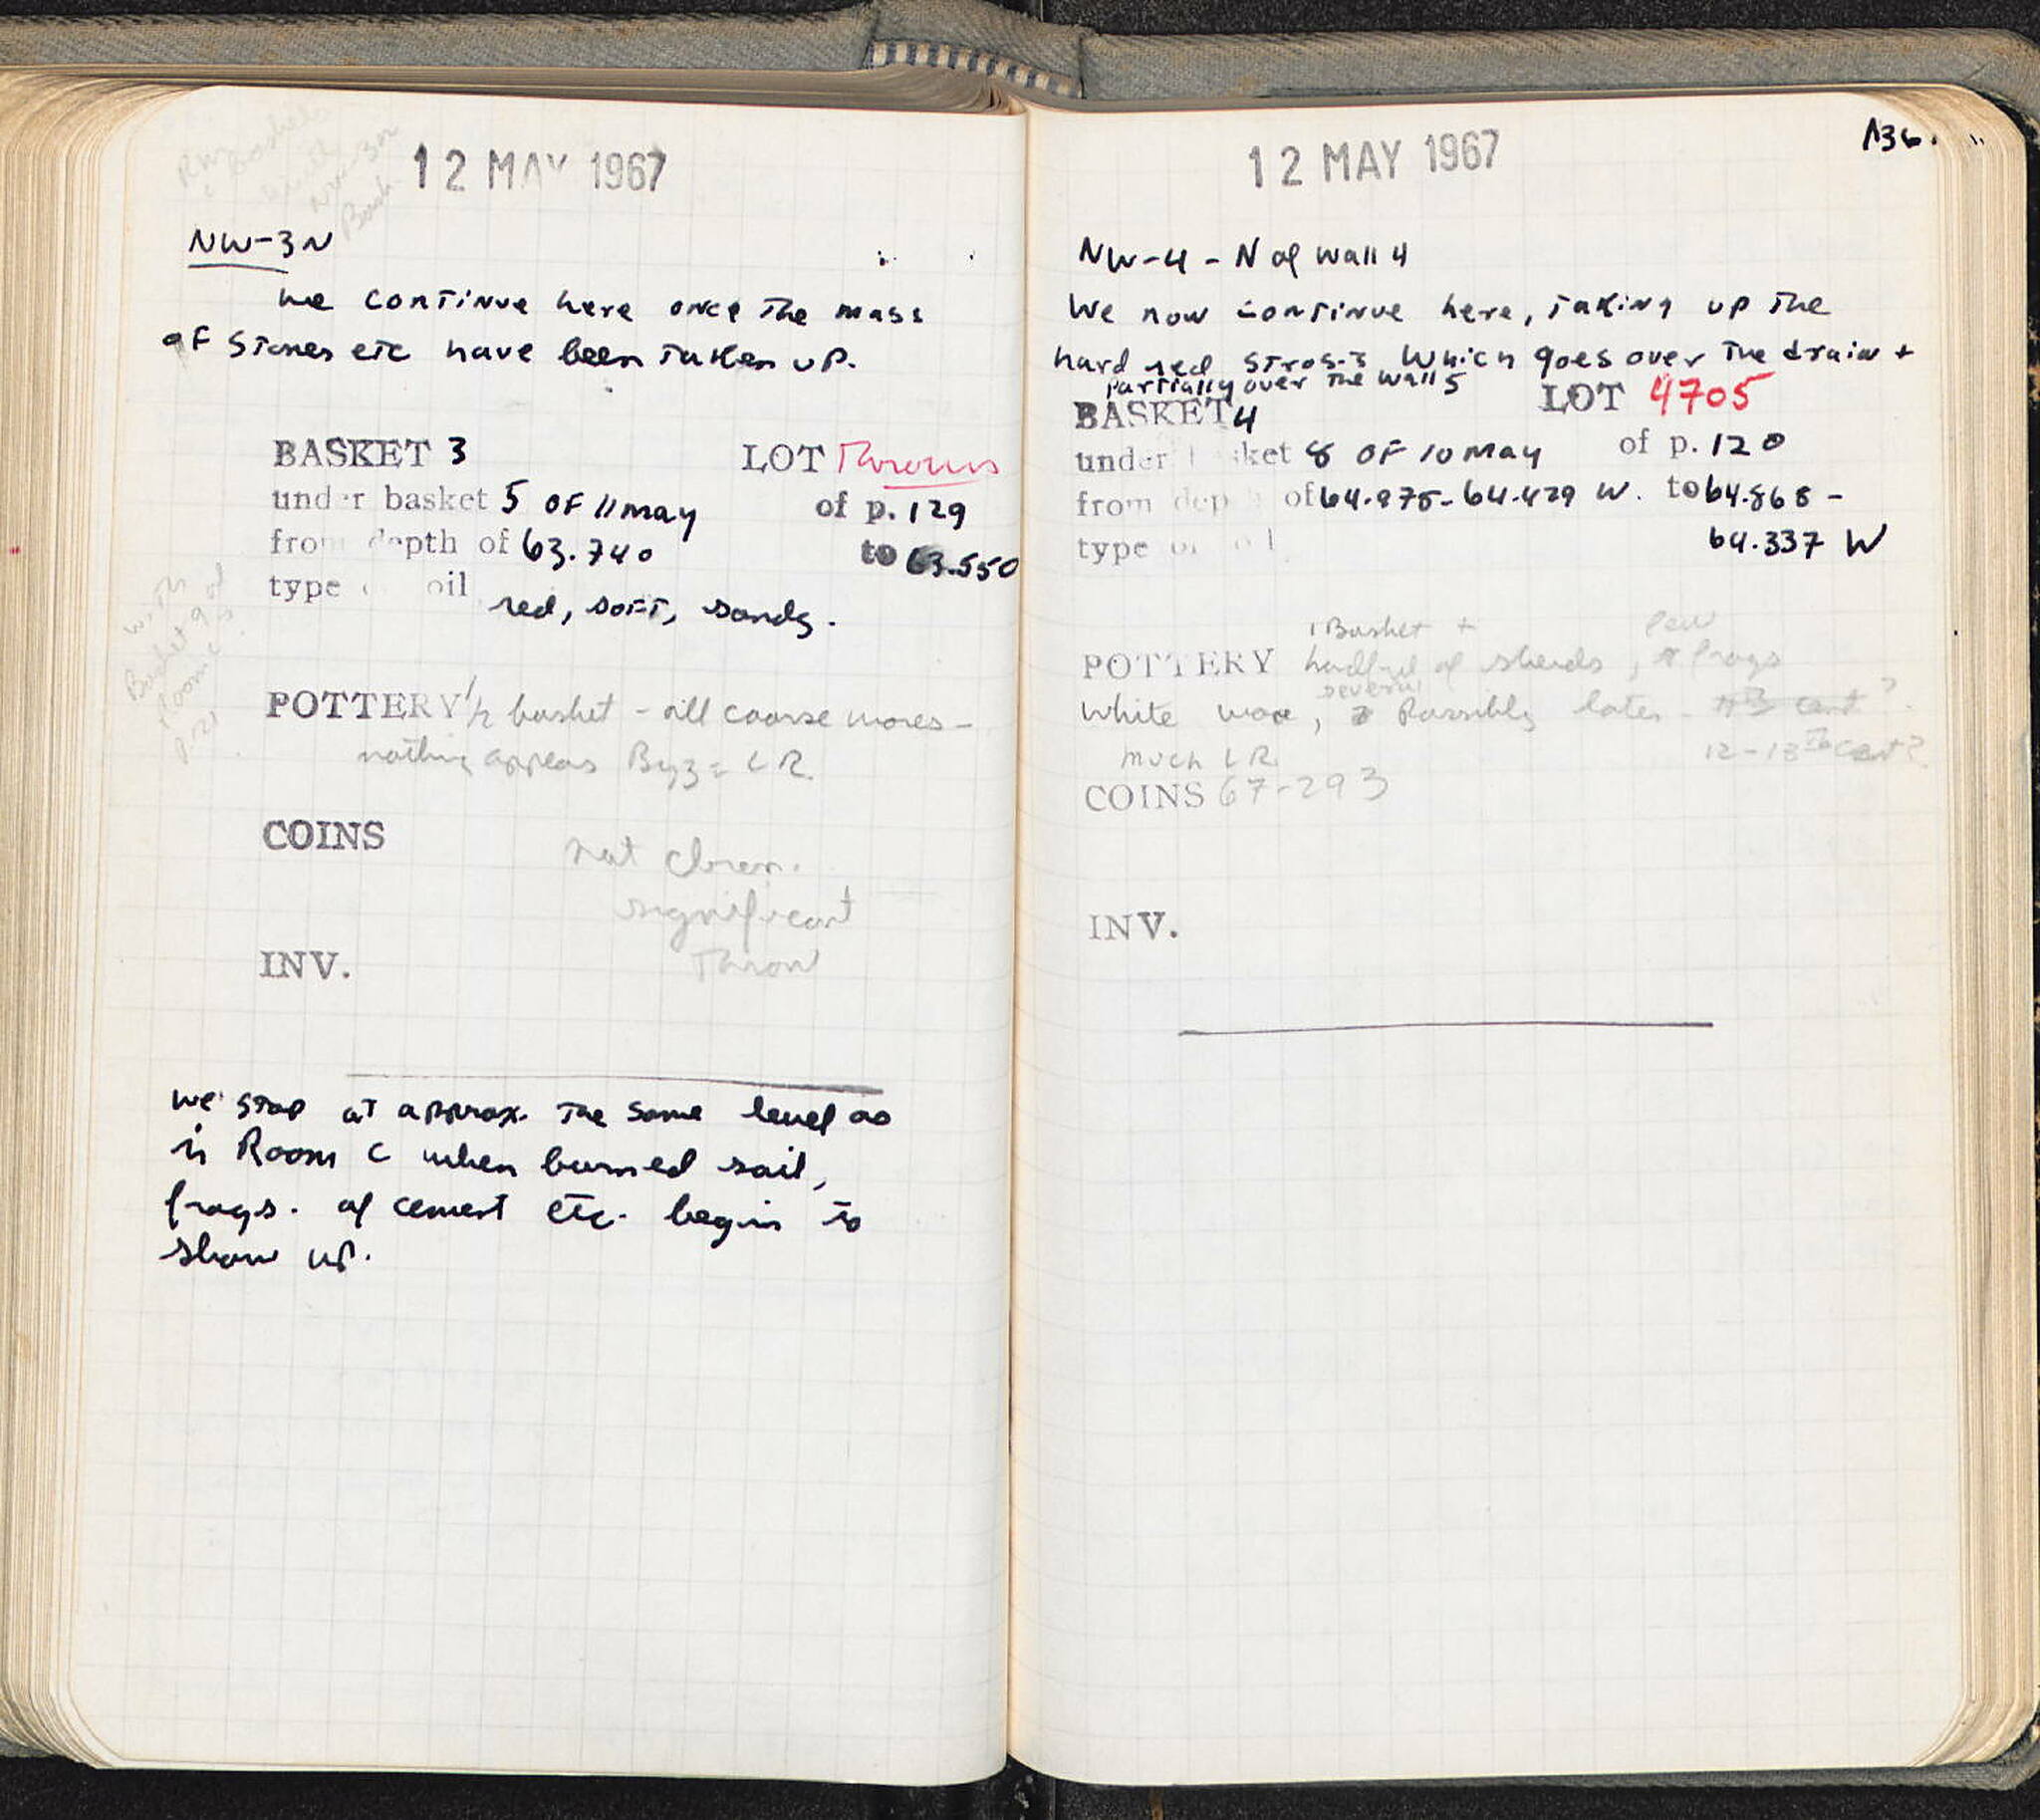 12 MAY 1967
NW-3N
we continue here once the mass
of stones etc have been taken up.
BASKET 3 LOT Thrown
under basket 5 OF 11 May of p. 129
from depth of 63.740 to 63.550
type oil red, soft, sandy.
with
Basket 9 of
Room C
POTTERY 1/2 basket - all coarse wares -
nothing appears Byz = LR.
COINS
not chron.
significant
Throw
INV.
we stop at approx. the same level as
in Room C when burned soil,
frags. of cement etc. begin to
show up.
12 MAY 1967
136.
NW-4 - N of wall 4
We now continue here, taking up the
hard red strosis which goes over the drain +
partially over the wall 5
LOT 4705
BASKET 4
under basket 8 OF 10 May of p. 120
from depth of 64.975-64.429 W. to 64.868 -
64.337 W
type
1 Basket + few
POTTERY handful of sherds, frags
several
white ware, possibly later 13 cent?
much LR. 12-13th cent?
COINS 67-293
INV.